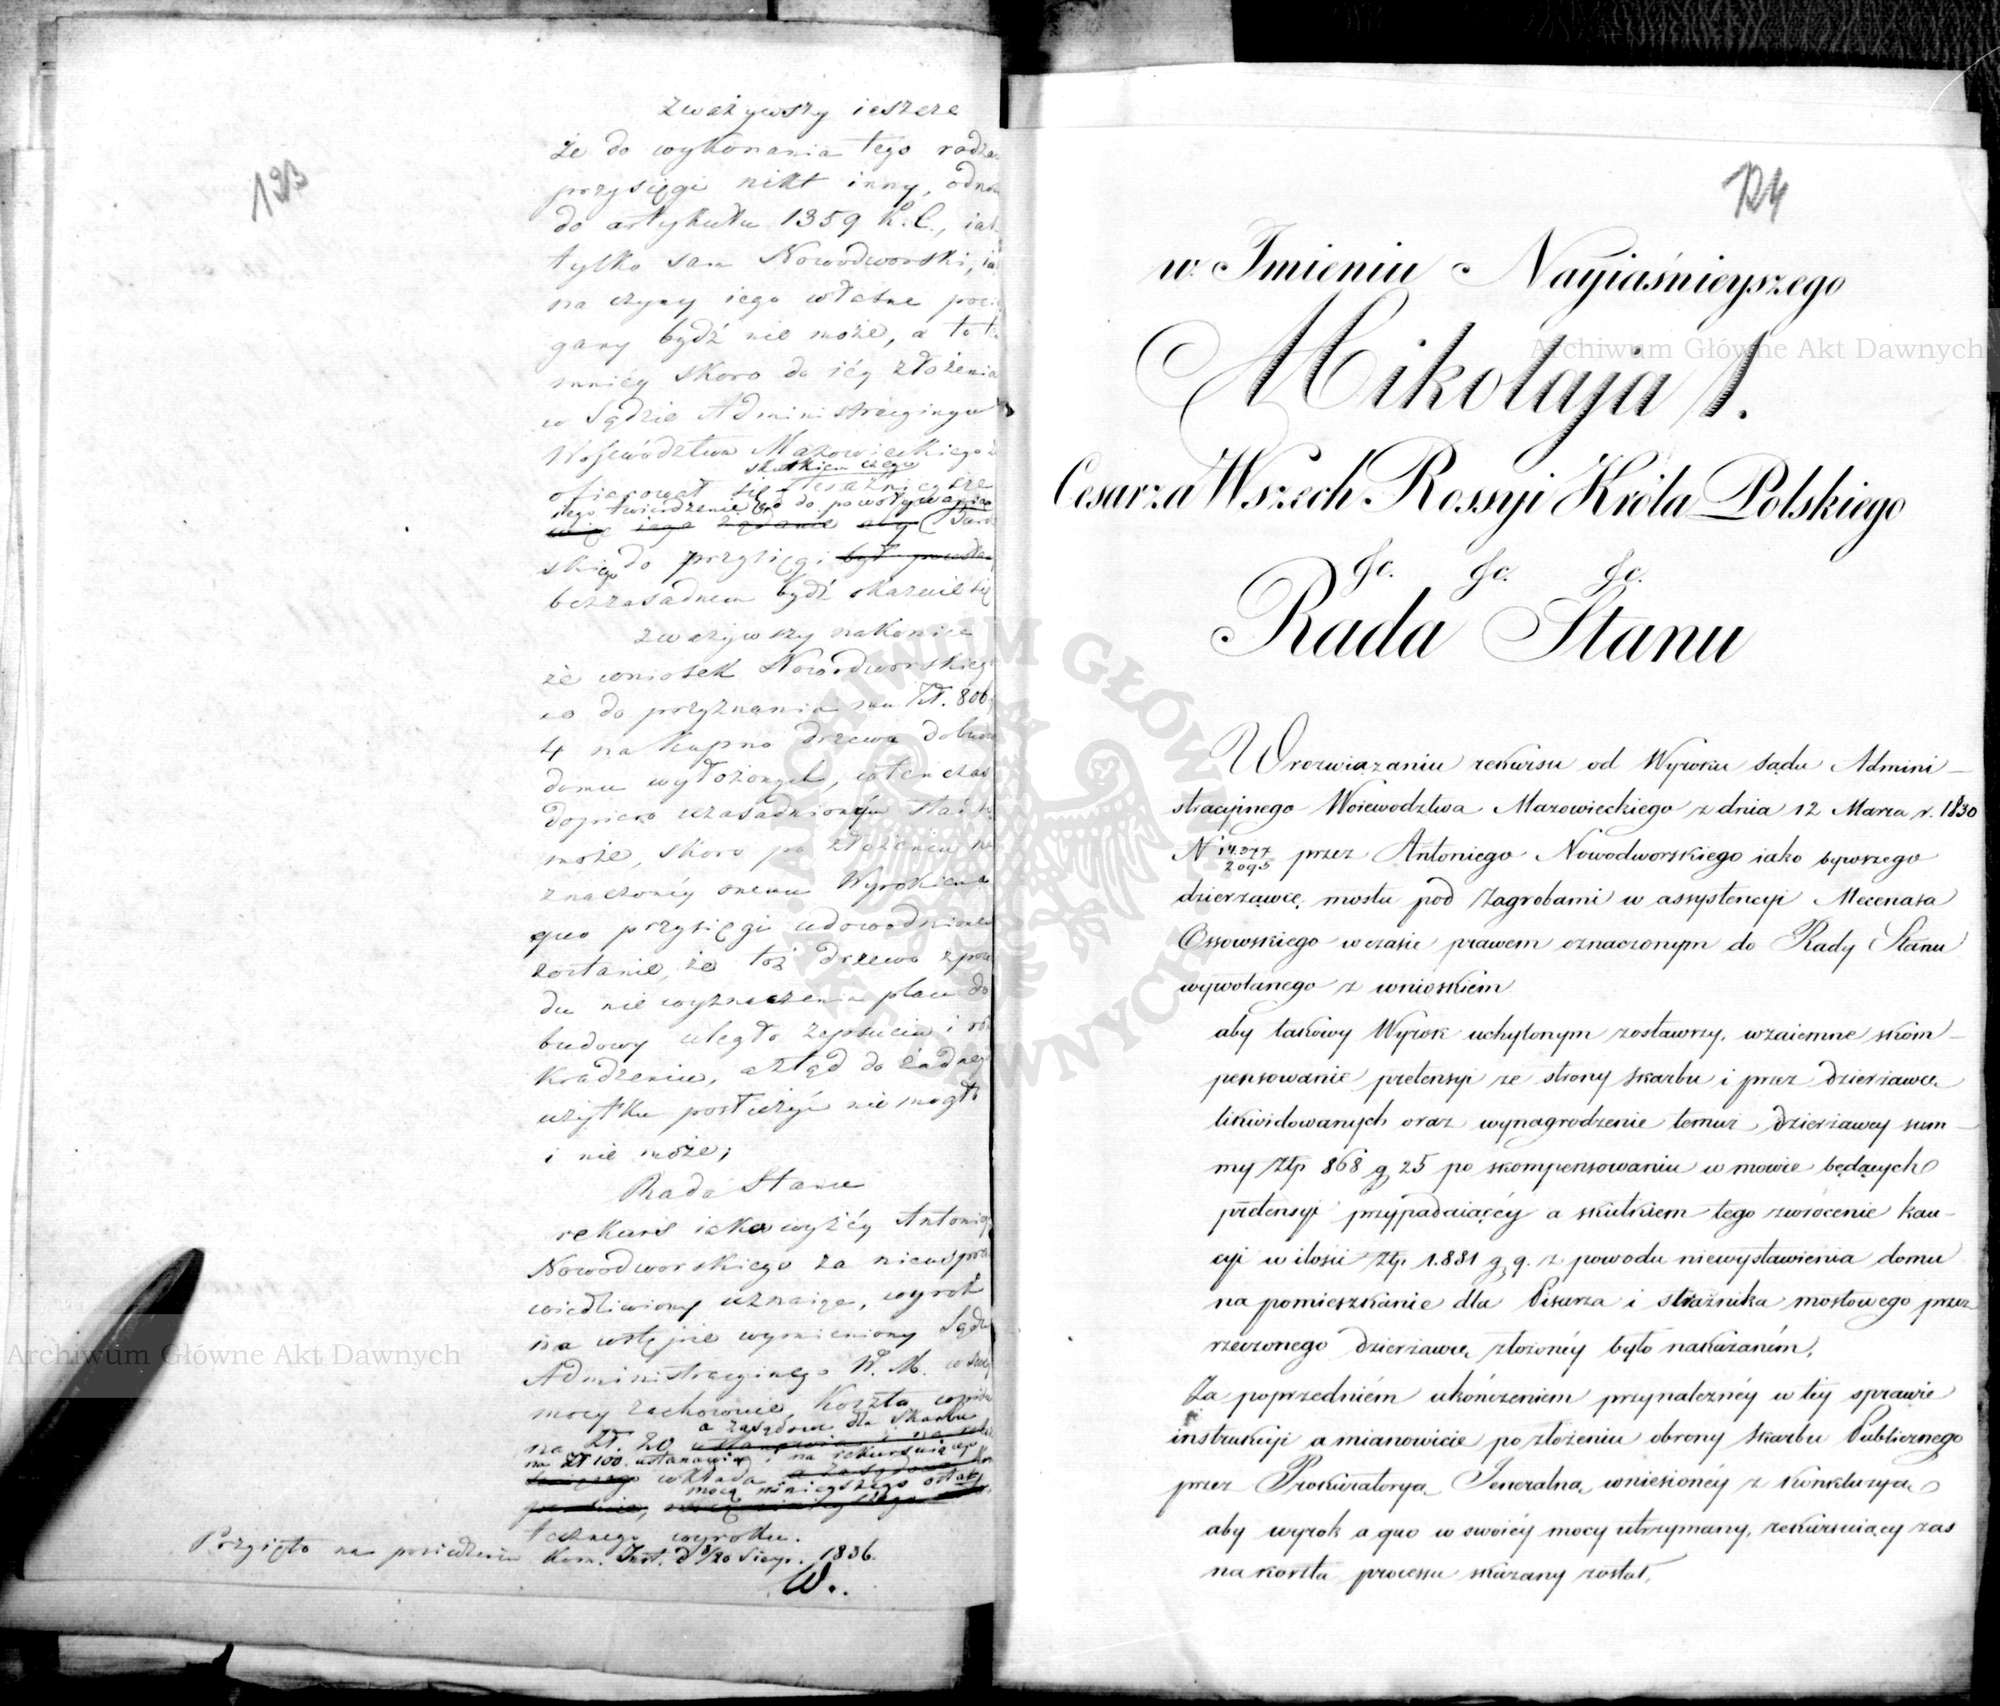 123
zważywszy ieszcze
że do wykonania tego rodza
przysięgi nikt inny, odno
do artykułu 1359 K. C., iak
tylko sam Nowodworski, ia
na czyny iego własne poci
gany bydź nie może, a to t
mniéy skoro do iéy złożenia
w Sądzie Administracyinym
Województwa Mazowieckiego
skutkiem czego
ofiarował się
iego twierdzenie co do powoływania
więc iego żądanie aby
skiego do przysięgi był
bezzasadnem bydź okazuie się
zważywszy nakoniec
że wniosek Nowodworskieg
co do przyznania mu Zł. 806
4 na kupno drzewa do bud
domu wyłożonych, wtenczas
dopiero uzasadnionym stać s
może, skoro po złożeniu na
znaczonéy onemu Wyrokiem a
quo przysięgi udowodnione
zostanie, że toż drzewo z pow
du nie wyznaczenia placu do
budowy uległo zepsuciu i
kradzeniu, a ztąd do żadneg
użytku posłużyć nie mogło
i nie może;
Rada Stanu
rekurs iako wyżéy Antonieg
Nowodworskiego za nieuspra
wiedliwiony uznaiąc, wyrok
na wstępie wymieniony Sądu
Administracyinego W. M. w swéy
mocy zachowuie, koszta
a zasądza dla Skarbu
na Zł. 20 ustanawia i na
na Zł 100. ustanawia i na rekursuiącego
wkłada, a zasądza
mocą ninieyszego ostat
tecznego wyroku.
Przyięto na posiedzeniu Kom. Inst. d 8/20 Sierp. 1836.
W..
124
w Imieniu Nayiaśnieyszego
Mikołaja I.
Cesarza Wszech Rossyi Króla Polskiego
&c. &c. &c.
Rada Stanu
W rozwiązaniu rekursu od Wyroku Sądu Admini-
stracyinego Woiewodztwa Mazowieckiego z dnia 12 Marca r. 1830
N 14.377/2093 przez Antoniego Nowodworskiego iako bywszego
dzierżawcę mostu pod Zagrobami w assystencyi Mecenasa
Ossowskiego w czasie prawem oznaczonym do Rady Stanu
wywołanego z wnioskiem
aby takowy Wyrok uchylonym zostawszy, wzaiemne skom-
pensowanie pretensyi ze strony skarbu i przez dzierżawcę
likwidowanych oraz wynagrodzenie temuż dzierżawcy sum-
my Złp 868 g 25 po skompensowaniu w mowie będących
pretensyi przypadaiącéy a skutkiem tego zwrócenie kau-
cyi w ilości Złp. 1.881 g. 9. z powodu niewystawienia domu
na pomieszkanie dla Pisarza i strażnika mostowego przez
rzeczonego dzierżawcę złożonéy było nakazaném.
Za poprzedniém ukończeniem przynależnéy w téy sprawie
instrukcyi a mianowicie po złożeniu obrony Skarbu Publicznego
przez Prokuratoryą Jeneralną wniesionéy z konkluzyą
aby wyrok a quo w swoiéy mocy utrzymany, rekursuiący zaś
na koszta processu skazany został,
Archiwum Główne Akt Dawnych
Archiwum Główne Akt Dawnych
ARCHIWUM GŁÓWNE AKT DAWNYCH